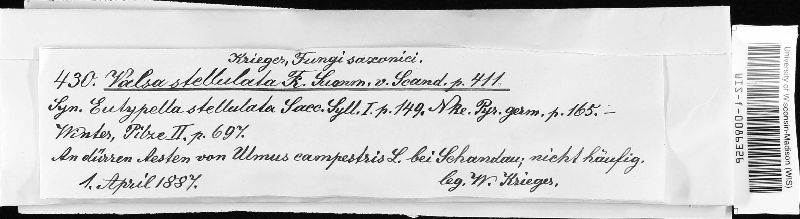 Krieger, Fungi saxonici.
430. Valsa stellulata Fr. Summ. v. Scand. p. 411.
Syn. Eutypella stellulata Sacc. Syll. I. p. 149. Nke. Pyr. germ. p. 165. –
Winter, Pilze II. p. 697.
An dürren Aesten von Ulmus campestris L. bei Schandau; nicht häufig.
1. April 1887.
leg. W. Krieger.
University of Wisconsin-Madison (WIS)
WIS-f-0086326